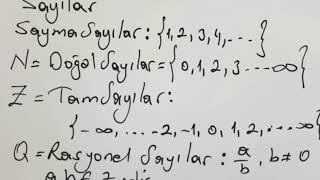 Sayılar
Sayma Sayılar: {1, 2, 3, 4, ....}
N = Doğal Sayılar = {0, 1, 2, 3 --- ∞}
Z = Tam Sayılar:
{-∞, .... -2, -1, 0, 1, 2, ... ∞}
Q = Rasyonel Sayılar: a/b, b≠0